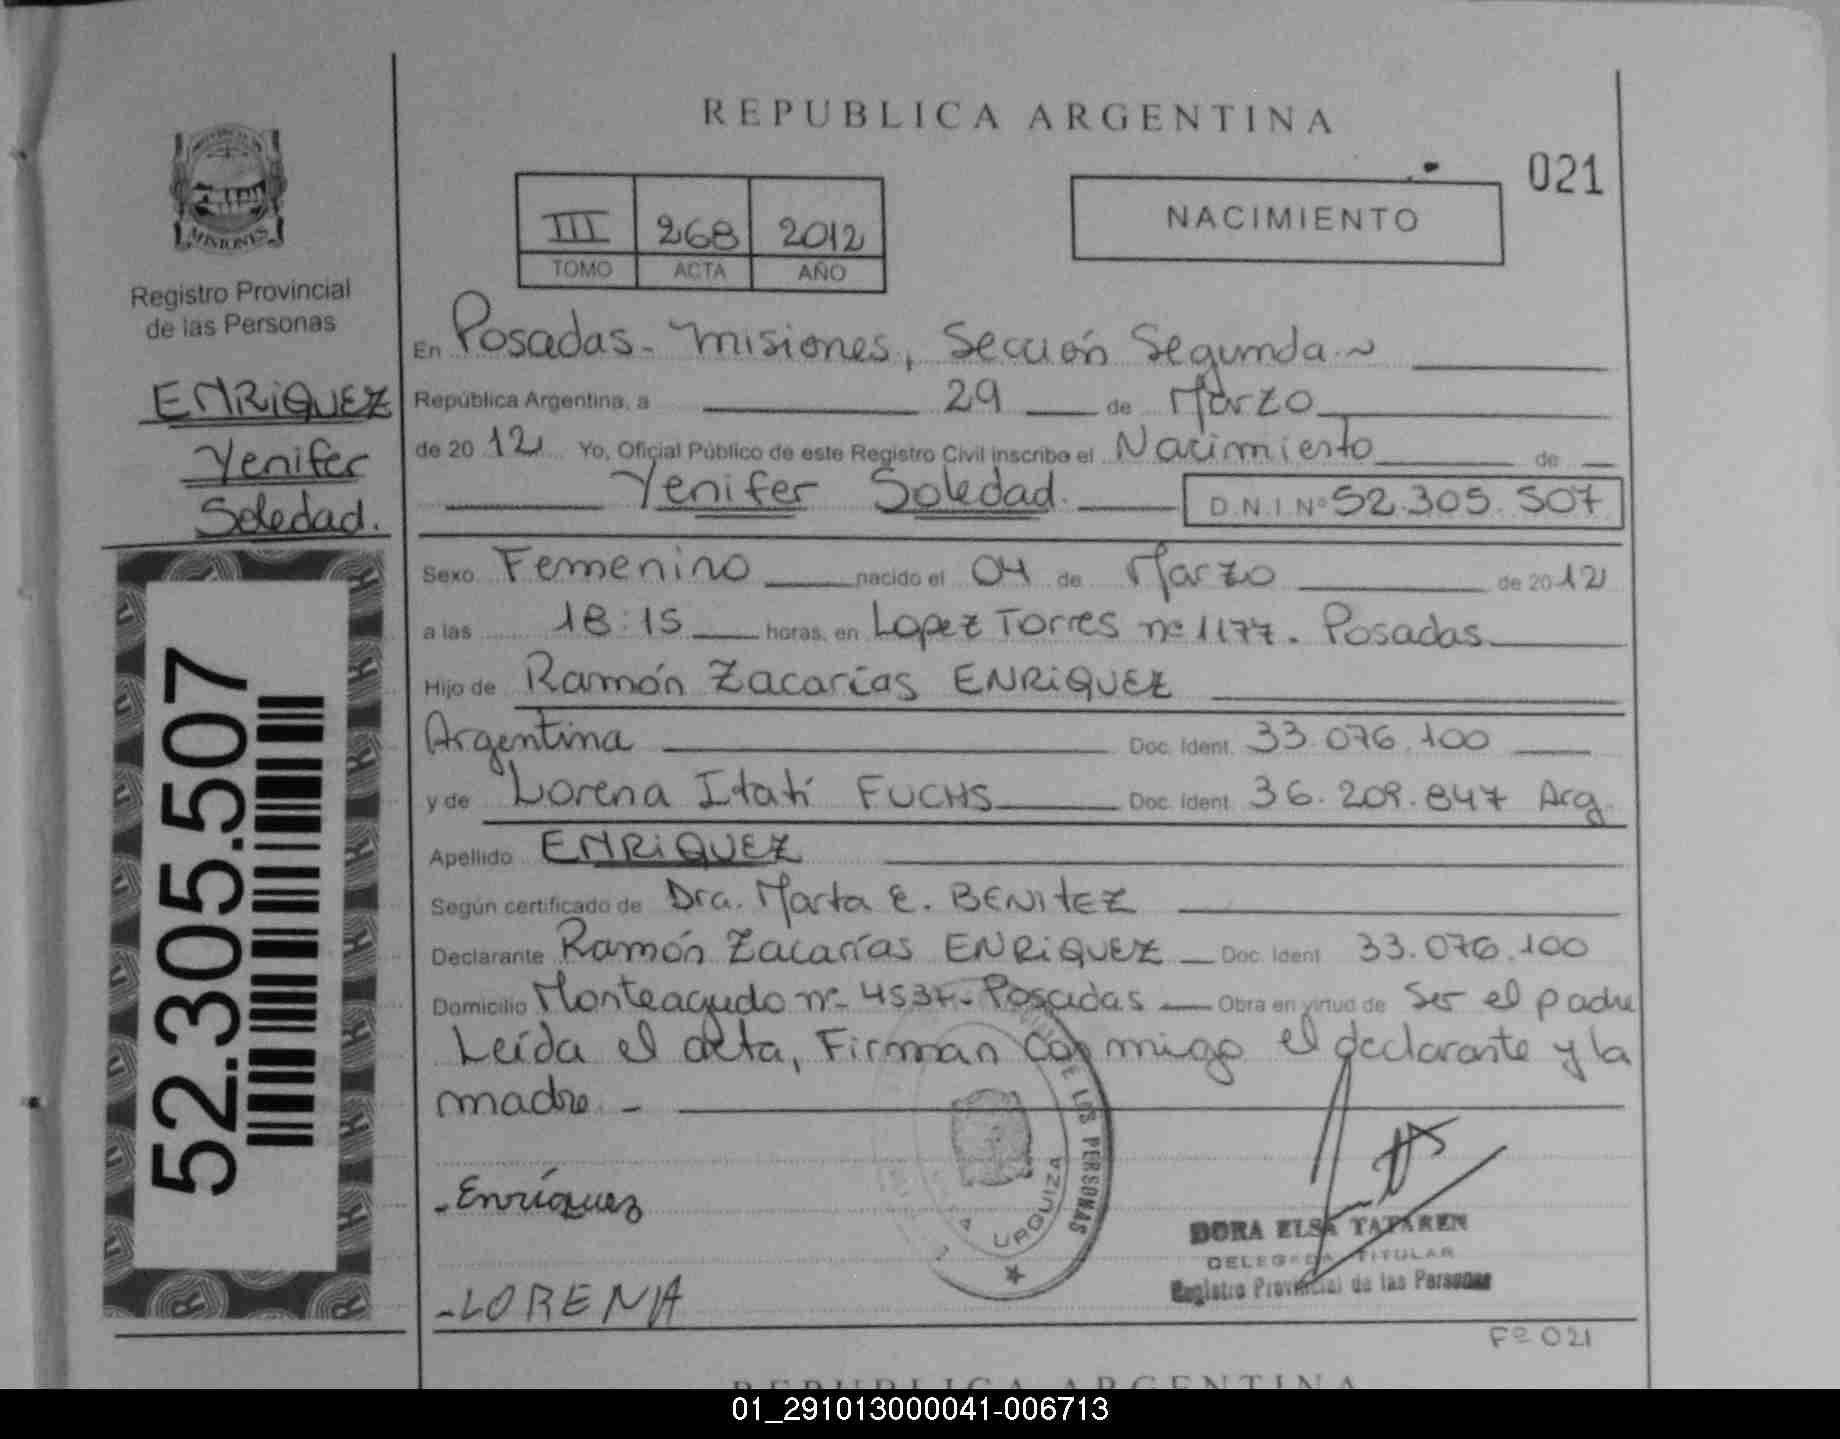 REPUBLICA ARGENTINA
021
MISIONES
Registro Provincial
de las Personas
III 268 2012
TOMO ACTA AÑO
NACIMIENTO
ENRiQUEZ
Yenifer
Soledad.
En Posadas - Misiones, Sección Segunda.~
República Argentina, a 29 de Marzo
de 2012 Yo, Oficial Público de este Registro Civil inscribo el Nacimiento de
Yenifer Soledad. D.N.I Nº 52.305.507
Sexo Femenino nacido el 04 de Marzo de 2012
a las 18:15 horas, en Lopez Torres nº 1177. Posadas
Hijo de Ramón Zacarías ENRiQUEZ
Argentina Doc. Ident. 33.076.100
y de Lorena Itatí FUCHS Doc. Ident. 36.209.847 Arg.
Apellido ENRiQUEZ
Según certificado de Dra. Marta E. BENitEZ
Declarante Ramón Zacarías ENRiQUEZ Doc. Ident 33.076.100
Domicilio Monteagudo nº 4537- Posadas Obra en virtud de Ser el padre
Leída el acta, Firman conmigo el declarante y la
madre. -
52.305.507
DE LAS PERSONAS
URQUIZA
-Enríquez
-LORENA
DORA ELSA TATAREN
DELEGADA TITULAR
Registro Provincial de las Personas
Fº 021
REPUBLICA ARGENTINA
01_291013000041-006713